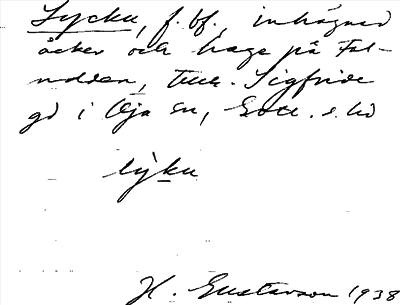 Lycku, f. bf., inhägnad
åker och hage på Fal-
udden, till. Sigfride
gd i Öja sn, Gotl. s. hd
lýku
H. Gustavson 1938